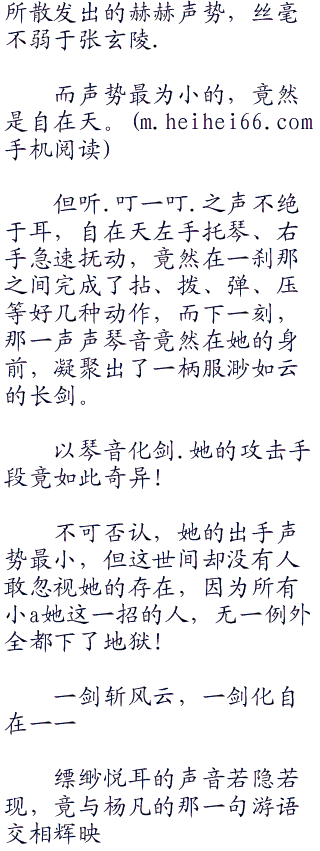 所散发出的赫赫声势，丝毫
不弱于张玄陵.
而声势最为小的，竟然
是自在天。(m.heihei66.com
手机阅读)
但听.叮一叮.之声不绝
于耳，自在天左手托琴、右
手急速抚动，竟然在一刹那
之间完成了拈、拨、弹、压
等好几种动作，而下一刻，
那一声声琴音竟然在她的身
前，凝聚出了一柄服渺如云
的长剑。
以琴音化剑.她的攻击手
段竟如此奇异!
不可否认，她的出手声
势最小，但这世间却没有人
敢忽视她的存在，因为所有
小a她这一招的人，无一例外
全都下了地狱!
一剑斩风云，一剑化自
在一一
缥缈悦耳的声音若隐若
现，竟与杨凡的那一句游语
交相辉映